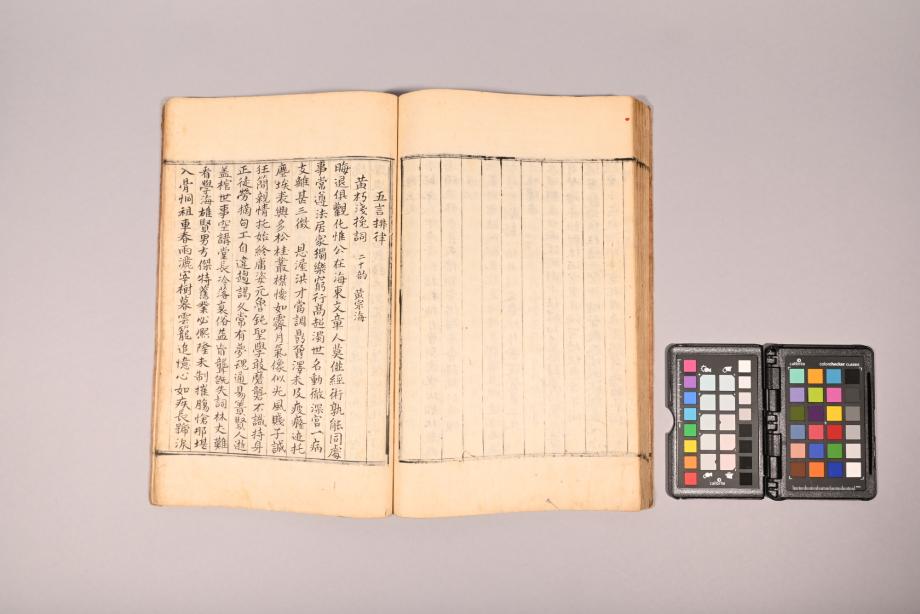 五言排律
黃朽淺挽詞 二十韵 黃宗海
晦退俱觀化惟公在海東文章人莫倠經術孰能同處
事常遵法居家獨樂窮行高超濁世名動徹深宮一病
支離甚三徵 恩渥洪才當調鼎鼐澤未及疲癃迫托
塵埃表興多松桂叢襟懷如霽月氣像似光風賤子誠
狂簡親情托始終庸姿元魯鈍聖學敢磨礱不識持身
正徒勞摘句工自違趨謁久常有夢魂通易簀賢人逝
盖棺世事空講堂長冷落哀俗益盲聾旣失詞林丈難
看學海雄賢男方傑特舊業必熙隆未制摧膓愴那堪
入骨恫祖車春雨灑宰樹暮雲籠追憶心如疾長歸淚
calibrite
colorchecker classic
calibrite